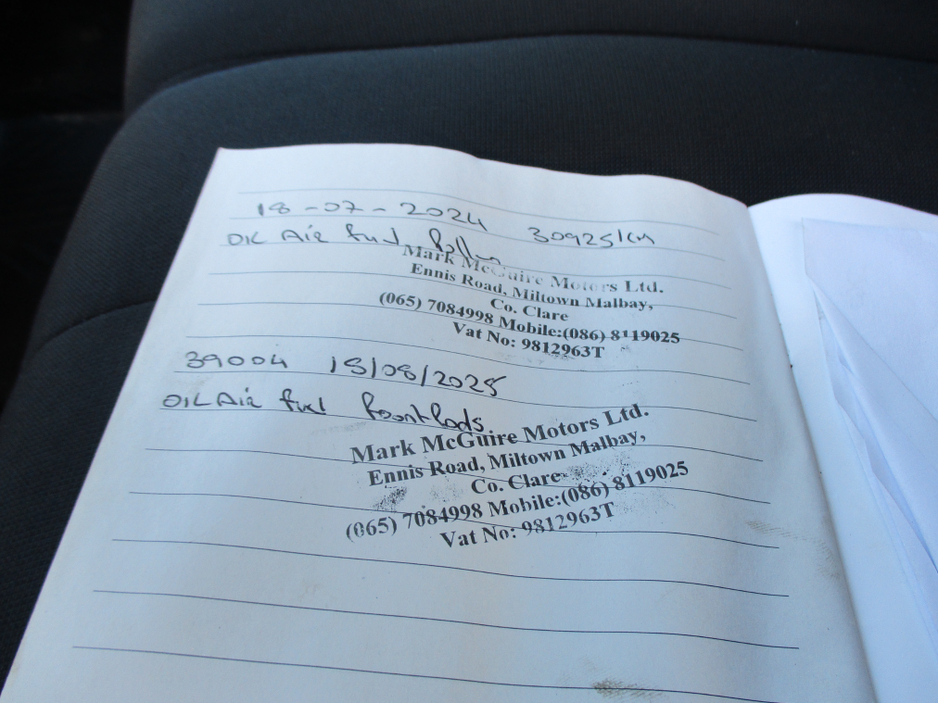 18-07-2024 30925 km
OIL Air fuel Pollen
Mark McGuire Motors Ltd.
Ennis Road, Miltown Malbay,
Co. Clare
(065) 7084998 Mobile:(086) 8119025
Vat No: 9812963T
39004 18/08/2025
OIL Air fuel frontPads
Mark McGuire Motors Ltd.
Ennis Road, Miltown Malbay,
Co. Clare
(065) 7084998 Mobile:(086) 8119025
Vat No: 9812963T